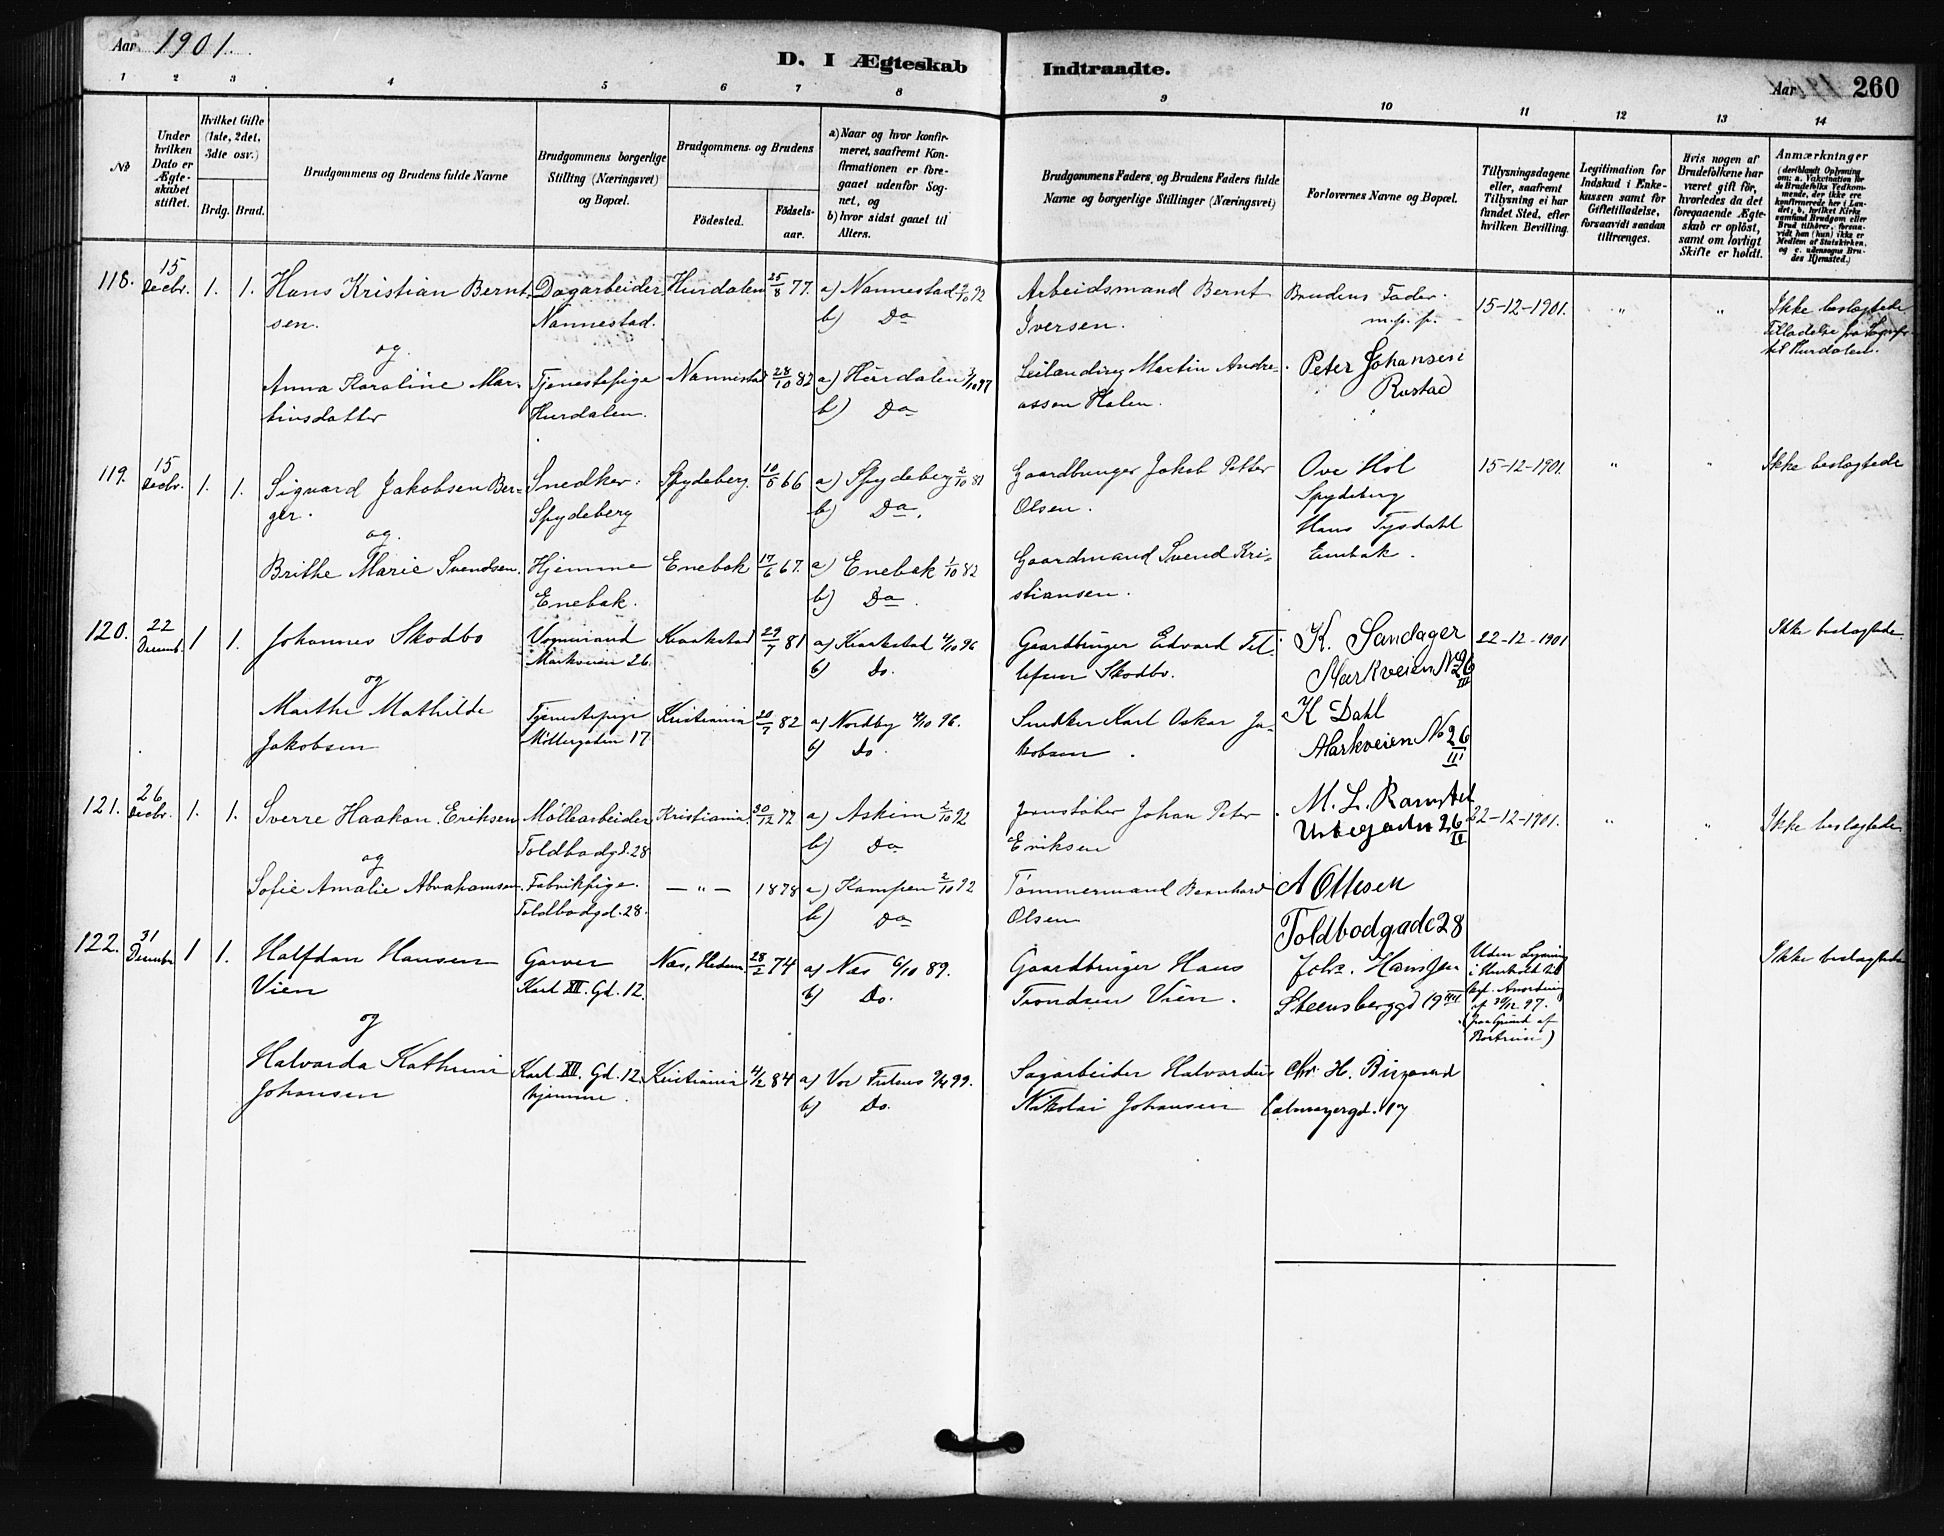 Aar 1901.
D. I Ægteskab Indtraadte.
Aar 260
1 2 3 4 5 6 7 8 9 10 11 12 13 14
№
Under hvilken Dato er Ægteskabet stiftet.
Hvilket Gifte (1ste, 2det, 3die osv.)
Brdg. Brud.
Brudgommens og Brudens fulde Navne
Brudgommens borgerlige Stilling (Næringsvei) og Bopæl.
Brudgommens og Brudens
Födested. Födsels-aar.
a) Naar og hvor konfirmeret, saafremt Konfirmationen er foregaaet udenfor Sognet, og
b) hvor sidst gaaet til Alters.
Brudgommens Faders, og Brudens Faders fulde Navne og borgerlige Stillinger (Næringsvei)
Forlovernes Navne og Bopæl.
Tillysningsdagene eller, saafremt Tillysning ei har fundet Sted, efter hvilken Bevilling.
Legitimation for Indskud i Enkekassen samt for Giftetilladelse, forsaavidt saadan tiltrænges.
Hvis nogen af Brudefolkene har været gift för, hvorledes da det foregaaende Ægteskab er oplöst, samt om lovligt Skifte er holdt.
Anmærkninger
118. 15 Decbr. 1. 1. Hans Kristian Berntsen. Dagarbeider Nannestad. Hurdalen 25/8 77. a) Nannestad 2/10 92 b) Do Arbeidsmand Bernt Iversen. Brudens Fader. m.p.p. 15-12-1901. " " Ikke beslægtede
til Hurdalen.
og
Anna Karoline Martinsdatter Tjenestepige Hurdalen. Nannestad 28/10 82 a) Hurdalen 3/10 97 b) Do Leilænding Martin Andreassen Holen. Peter Johansen Rustad
119. 15 Decbr. 1. 1. Sigvard Jakobsen Berger. Snedker. Spydeberg Spydeberg. 10/5 66 a) Spydeberg 2/10 81 b) Do. Gaardbruger Jakob Petter Olsen. Ove Hol Spydeberg 15-12-1901. " " Ikke beslægtede
og.
Brithe Marie Svendsen. Hjemme Enebak. Enebak 17/6 67. a) Enebak 1/10 82 b) Do. Gaardmand Svend Kristiansen. Hans Tysdahl Enebak.
120. 22 Decemb. 1 1. Johannes Skodbo Vognmand Markveien 26. Kraakstad 29/7 81 a) Kraakstad 4/10 96 b) Do. Gaardbruger Edvard Tellefsen Skodbo. K. Sandager Markveien No 26 III 22-12-1901 Ikke beslægtede
og
Marthe Mathilde Jakobsen Tjenestepige Möllergaden 17 Kristiania 20/7 82 a) Nordby 4/10 96. b) Do. Snedker Karl Oskar Jakobsen. K Dahl Markveien No 26 III
121. 26 Decbr. 1. 1. Sverre Haakon Eriksen Möllearbeider Toldbodgd. 28 Kristiania 30/12 77 a) Askim 2/10 92 b) Do Jernstöber Johan Peter Eriksen M. L. Ramstel Urtegaden 26 22-12-1901. " " Ikke beslægtede
og
Sofie Amalie Abrahamsen Fabrikpige. Toldbodgd. 28. — " — 1878 a) Kampen 2/10 92 b) Do Tömmermand Bernhard Olsen A Ottesen Toldbodgade 28
122. 31 Decembr 1 1. Halfdan Hansen Vien Garver Karl XII. Gd. 12. Næs, Hedem. 28/2 74 a) Næs 6/10 89. b) Do. Gaardbruger Hans Trondsen Vien. Johs. Hansen Steensberggd 19 Uden Lysning
af 30/12 97. Ikke beslægtede
og
Halvarda Kathrine Johansen Karl XII. Gd. 12. hjemme. Kristiania 4/2 84 a) Vor Frelsers 9/4 99. b) Do. Sagarbeider Halvardus Nikolai Johansen Chr. H. Birgaard Calmeyergd. 17